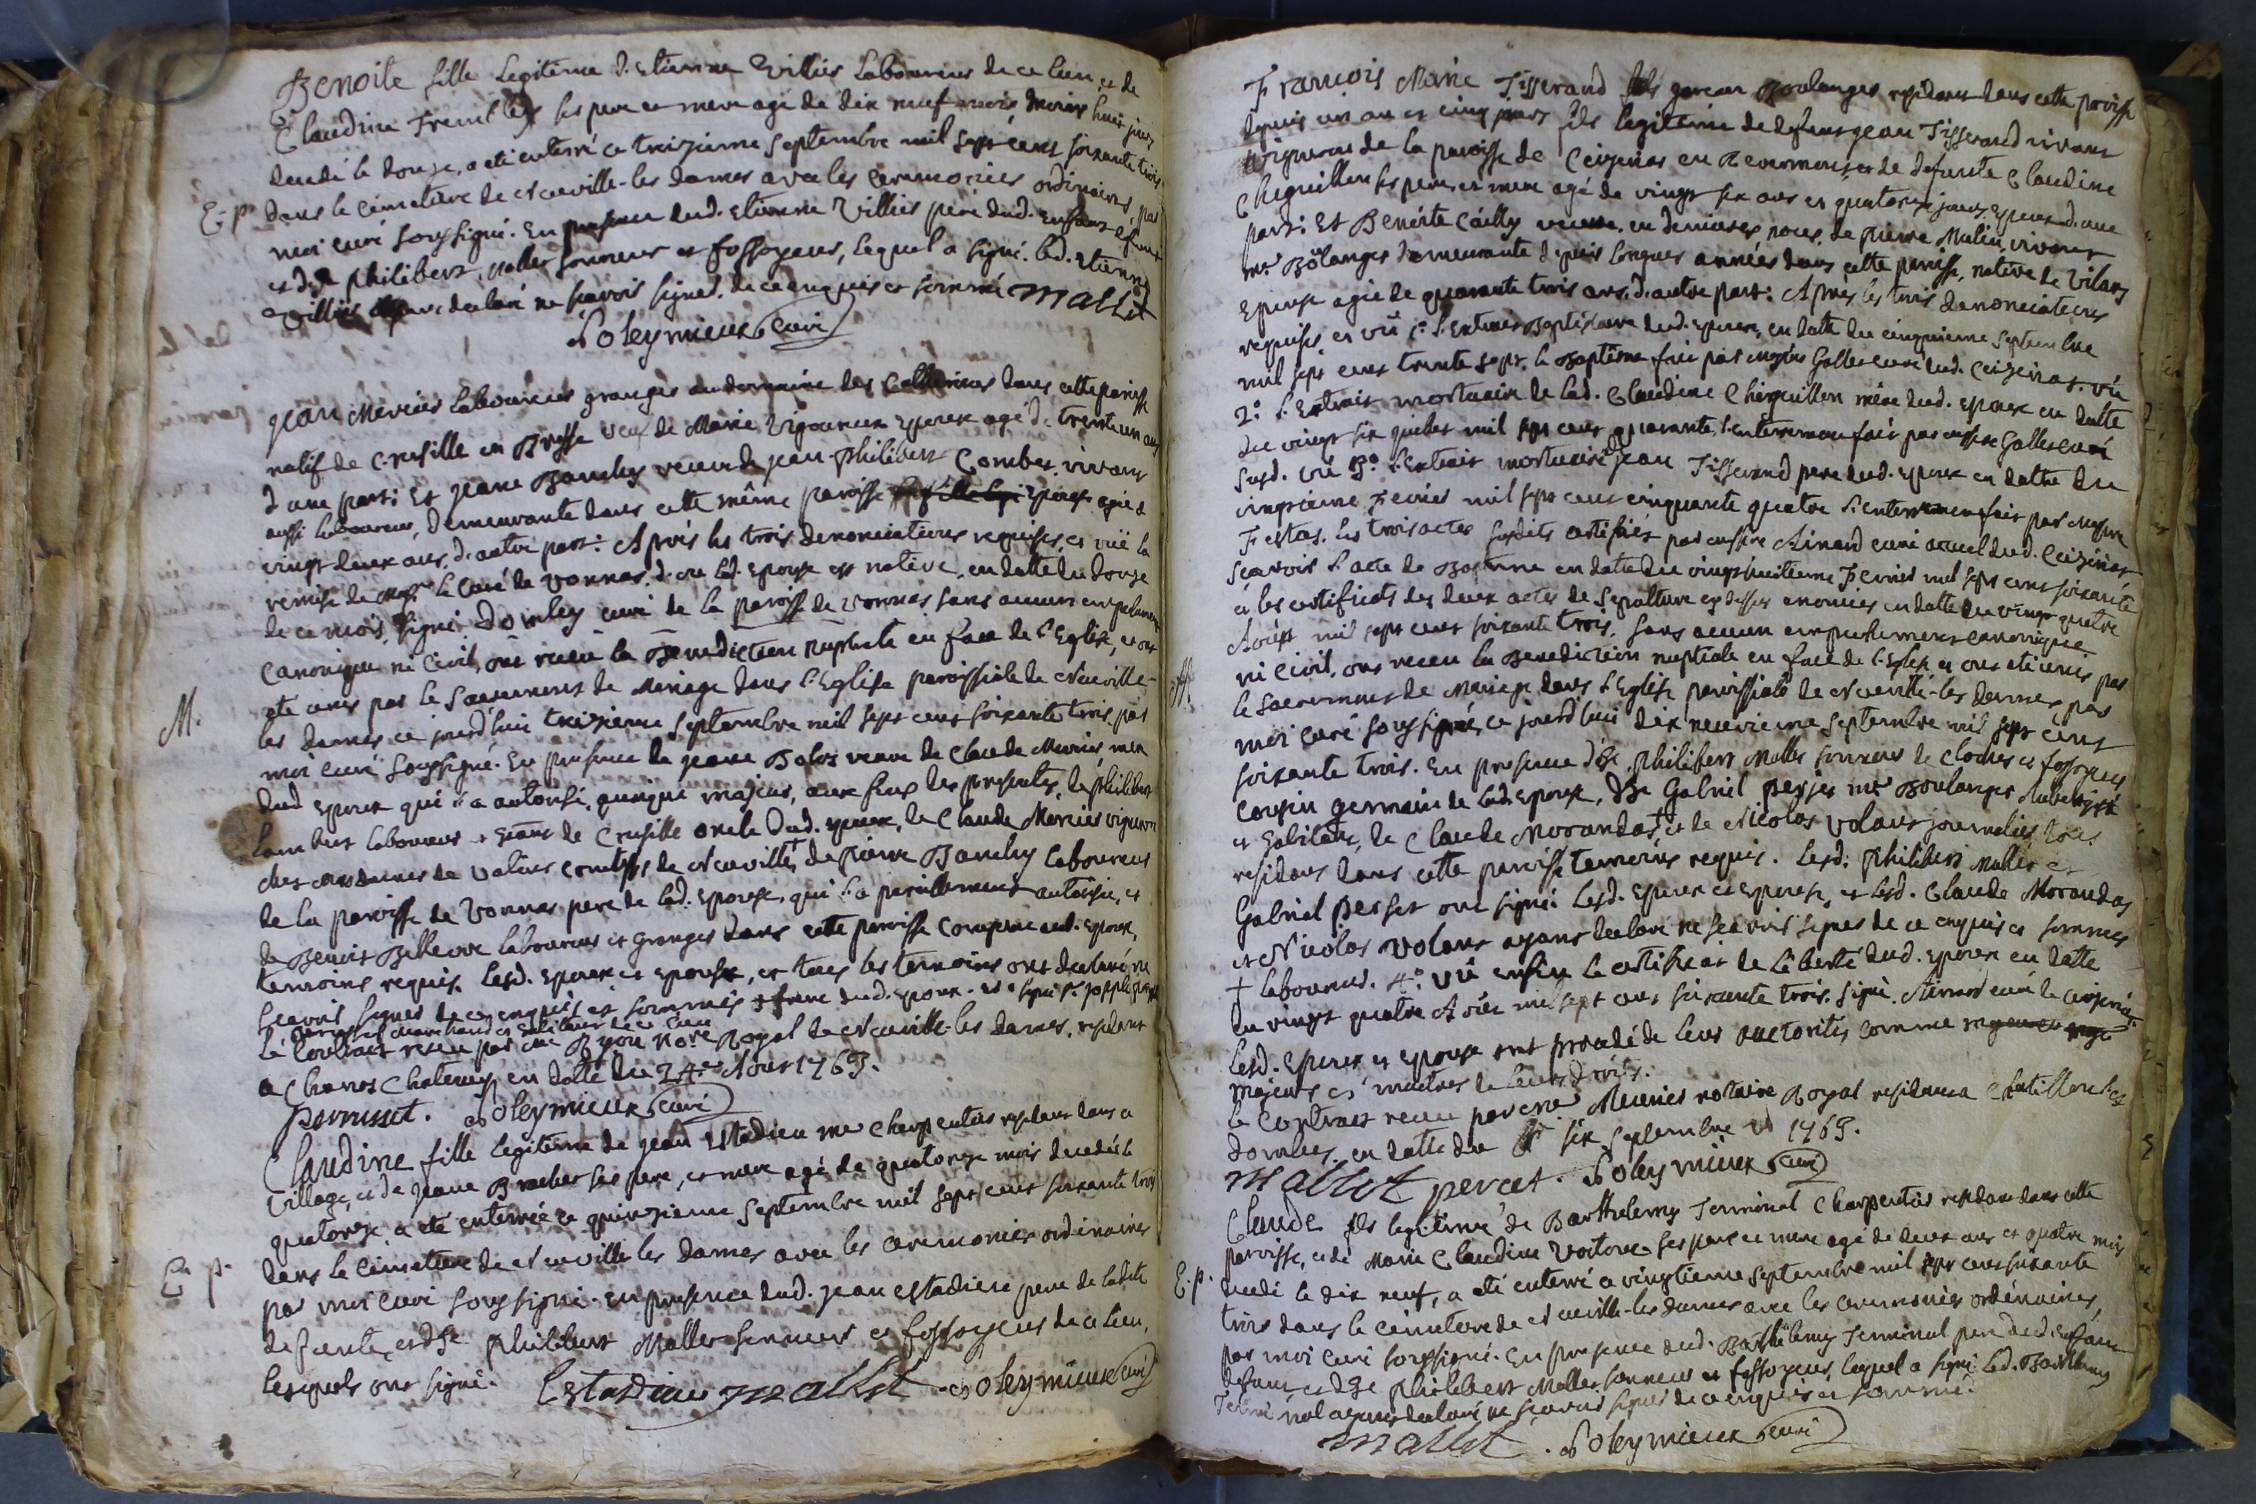 Benoite fille legitime d'Etienne Villier laboureur de ce lieu, et de
Claudine Tremblay ses pere et mere agé de dix neuf mois moins huit jours
decedé le douze, a eté enterré ce treizieme septembre mil sept cent soixante trois
E. p. dans le cimetiere de Neuville-les dames avec les ceremonies ordinaires, par
moi curé soussigné. En presence dud. Etienne Villier pere dud. enfant
et de Philibert Mallet sonneur et fossoyeur, lequel a signé. led. Etienne
Villier declaré ne sçavoir signer, de ce enquis et sommé mallet
Poleymieux curé
Jean Mercier laboureur granger au domaine des dans cette paroisse
natif de Crusille en Bresse veuf de Marie Vigoureux Epoux agé de trente un ans
d'une part; Et Jeane Bouchy veuve de Jean-Philibert Combet, vivant
aussi laboureur, demeurante dans cette même paroisse Epouse agée de
vingt deux ans, d'autre part: Après les trois denonciations requises, et vüe la
remise de Messr. le Curé de Vonnas, d'où lad. Epouse est native, en datte du douze
de ce mois, signé curé de la paroisse de Vonnas sans aucun empechement
canonique ni civil, ont recu la Benediction nuptiale en face de l'Eglise, et ont
eté unis par le Sacrement de Mariage dans l'Eglise paroissiale de Neuville-
M. les dames ce jourd'hui treizieme septembre mil sept cent soixante trois par
moi curé soussigné. En presence de Jeane veuve de Claude Mercier mere
dud. Epoux qui l'a autorisé, quoique majeur, aux fins des presentes, de Philibert
Lambert laboureur de Crusille oncle dud. epoux, de Claude Mercier vigneron
chez dames de Neuville, de Pierre Bouchy laboureur
de la paroisse de Vonnas pere de lad. Epouse, qui l'a pareillement autorisée, et
de Benoit laboureur et granger dans cette paroisse dud. epoux,
temoins requis. Lesd. Epoux et epouse, et tous les temoins ont declaré ne
sçavoir signer de ce enquis et sommés frere dud. epoux.
marchand et
Le Contract recu par me Royal de Neuville-les dames, resident
a Chanos Chatenay en datte du 24e Aout 1763.
perrusset. Poleymieux curé
Claudine fille legitime de Jean Estadieu me charpentier resident dans ce
village, et de Jeane Brochet ses pere, et mere agé de quatorze mois decedée le
quatorze, a eté enterrée ce quinzieme septembre mil sept cent soixante trois
E. p. dans le cimetiere de Neuville les dames avec les ceremonies ordinaires
par moi curé soussigné. En presence dud. Jean Estadieu pere de ladite
defunte, et de Philibert Mallet sonneur et fossoyeur de ce lieu,
lesquels ont signé. Lestadieu mallet Poleymieux curé
François Marie Tisserand garçon Boulanger resident dans cette paroisse
depuis un an et cinq jours fils legitime de defunt Jean Tisserand vivant
vigneron de la paroisse de Ceizeriat en Revermont et de defunte Claudine
Cherguillon ses pere, et mere agé de vingt six ans et quatorze jours, Epoux d'une
part: Et Benoite Cailly veuve, en dernieres noces de Pierre Mulin, vivant
me Bôlanger demeurante depuis longues années dans cette paroisse, native de Vilars
Epouse agée de quarante trois ans, d'autre part: Après les trois denonciations
requises, et vû 1° l'Extrait Baptistaire dud. Epoux, en datte du cinquieme septembre
mil sept cent trente sept, le Baptême fait par Messire Gallet curé dud. Ceizeriat. vû
2° l'Extrait mortuaire de lad. Claudine Cherguillon mere dud. epoux en datte
du vingt six juillet mil sept cent quarante, l'enterrement fait par messire Gallet curé
susd. vû 3° l'Extrait mortuaire de Jean Tisserand pere dud. Epoux en datte du
vingtieme Fevrier mil sept cent cinquante quatre l'enterrement fait par Messire
Festas. les trois actes susdits certifiés par messire Airard curé actuel dud. Ceizeriat
sçavoir l'acte de Bapteme en datte du vingt huitieme Fevrier mil sept cent soixante
et les certificats des deux actes de sepulture cy dessus enoncés en datte du vingt quatre
Aoust mil sept cent soixante trois, sans aucun empechement canonique
ni civil, ont recu la Benediction nuptiale en face de l'Eglise et ont eté unis par
le Sacrement de Mariage dans l'Eglise paroissiale de Neuville-les dames, par
moi curé soussigné, ce jourd'hui dix neuvieme septembre mil sept cent
soixante trois. En presence de Philibert Mallet sonneur de cloches et fossoyeur
cousin germain de lad. Epouse, de Gabriel me Boulanger Aubergiste
et de Claude Morandas † et de Nicolas Volant journalier tous
residans dans cette paroisse temoins requis. Lesd. Philibert Mallet et
Gabriel Perset ont signé. Lesd. Epoux et Epouse, et lesd. Claude Morandas
et Nicolas Volant ayans declaré ne sçavoir signer de ce enquis et sommés
† laboureur. 4° vû enfin le certificat de liberté dud. Epoux en datte
du vingt quatre Aout mil sept cent soixante trois. signé Airard curé de Ceizeriat.
Lesd. Epoux et epouse ont procedé de leurs autorités comme
majeurs et maitres de leurs droits.
Le Contract recu par me Meunier notaire Royal resident a Chatillon les
Dombes, en datte du six septembre 1763.
mallet percet. Poleymieux curé
Claude fils legitime de Barthelemy Terminal Charpentier resident dans cette
paroisse, et de Marie Claudine Voiture ses pere et mere agé de deux ans et quatre mois
E. p. decedé le dix neuf, a eté enterré ce vingtieme septembre mil sept cent soixante
trois dans le cimetiere de Neuville-les dames avec les ceremonies ordinaires,
par moi curé soussigné. En presence dud. Barthelemy Terminal pere dud. enfant
defunt, et de Philibert Mallet sonneur et fossoyeur, lequel a signé. Led. Barthelemy
Terminal ayant declaré ne sçavoir signer de ce enquis et sommé.
mallet. Poleymieux curé